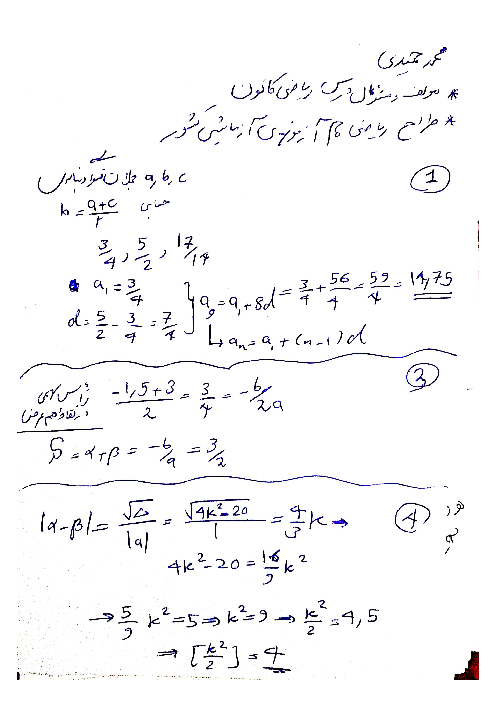 محمد حمیدی
* مولف و مسئول درس ریاضی کانون
* طراح ریاضی تمام آزمونهای آزمایشی کشور
① a, b, c جملات متوالی دنباله‌ی
حسابی b = a+c/2
3/4 , 5/2 , 17/4
a₁ = 3/4
d = 5/2 - 3/4 = 7/4
a₉ = a₁ + 8d = 3/4 + 56/4 = 59/4 = 14,75
aₙ = a₁ + (n-1)d
③
-1,5+3/2 = 3/4 = -b/2a
S = α+β = -b/a = 3/2
④
|α-β| = √Δ/|a| = √4k²-20/1 = 4/3 k →
4k²-20 = 16/9 k²
→ 5/9 k² = 5 ⇒ k² = 9 → k²/2 = 4,5
⇒ [k²/2] = 4